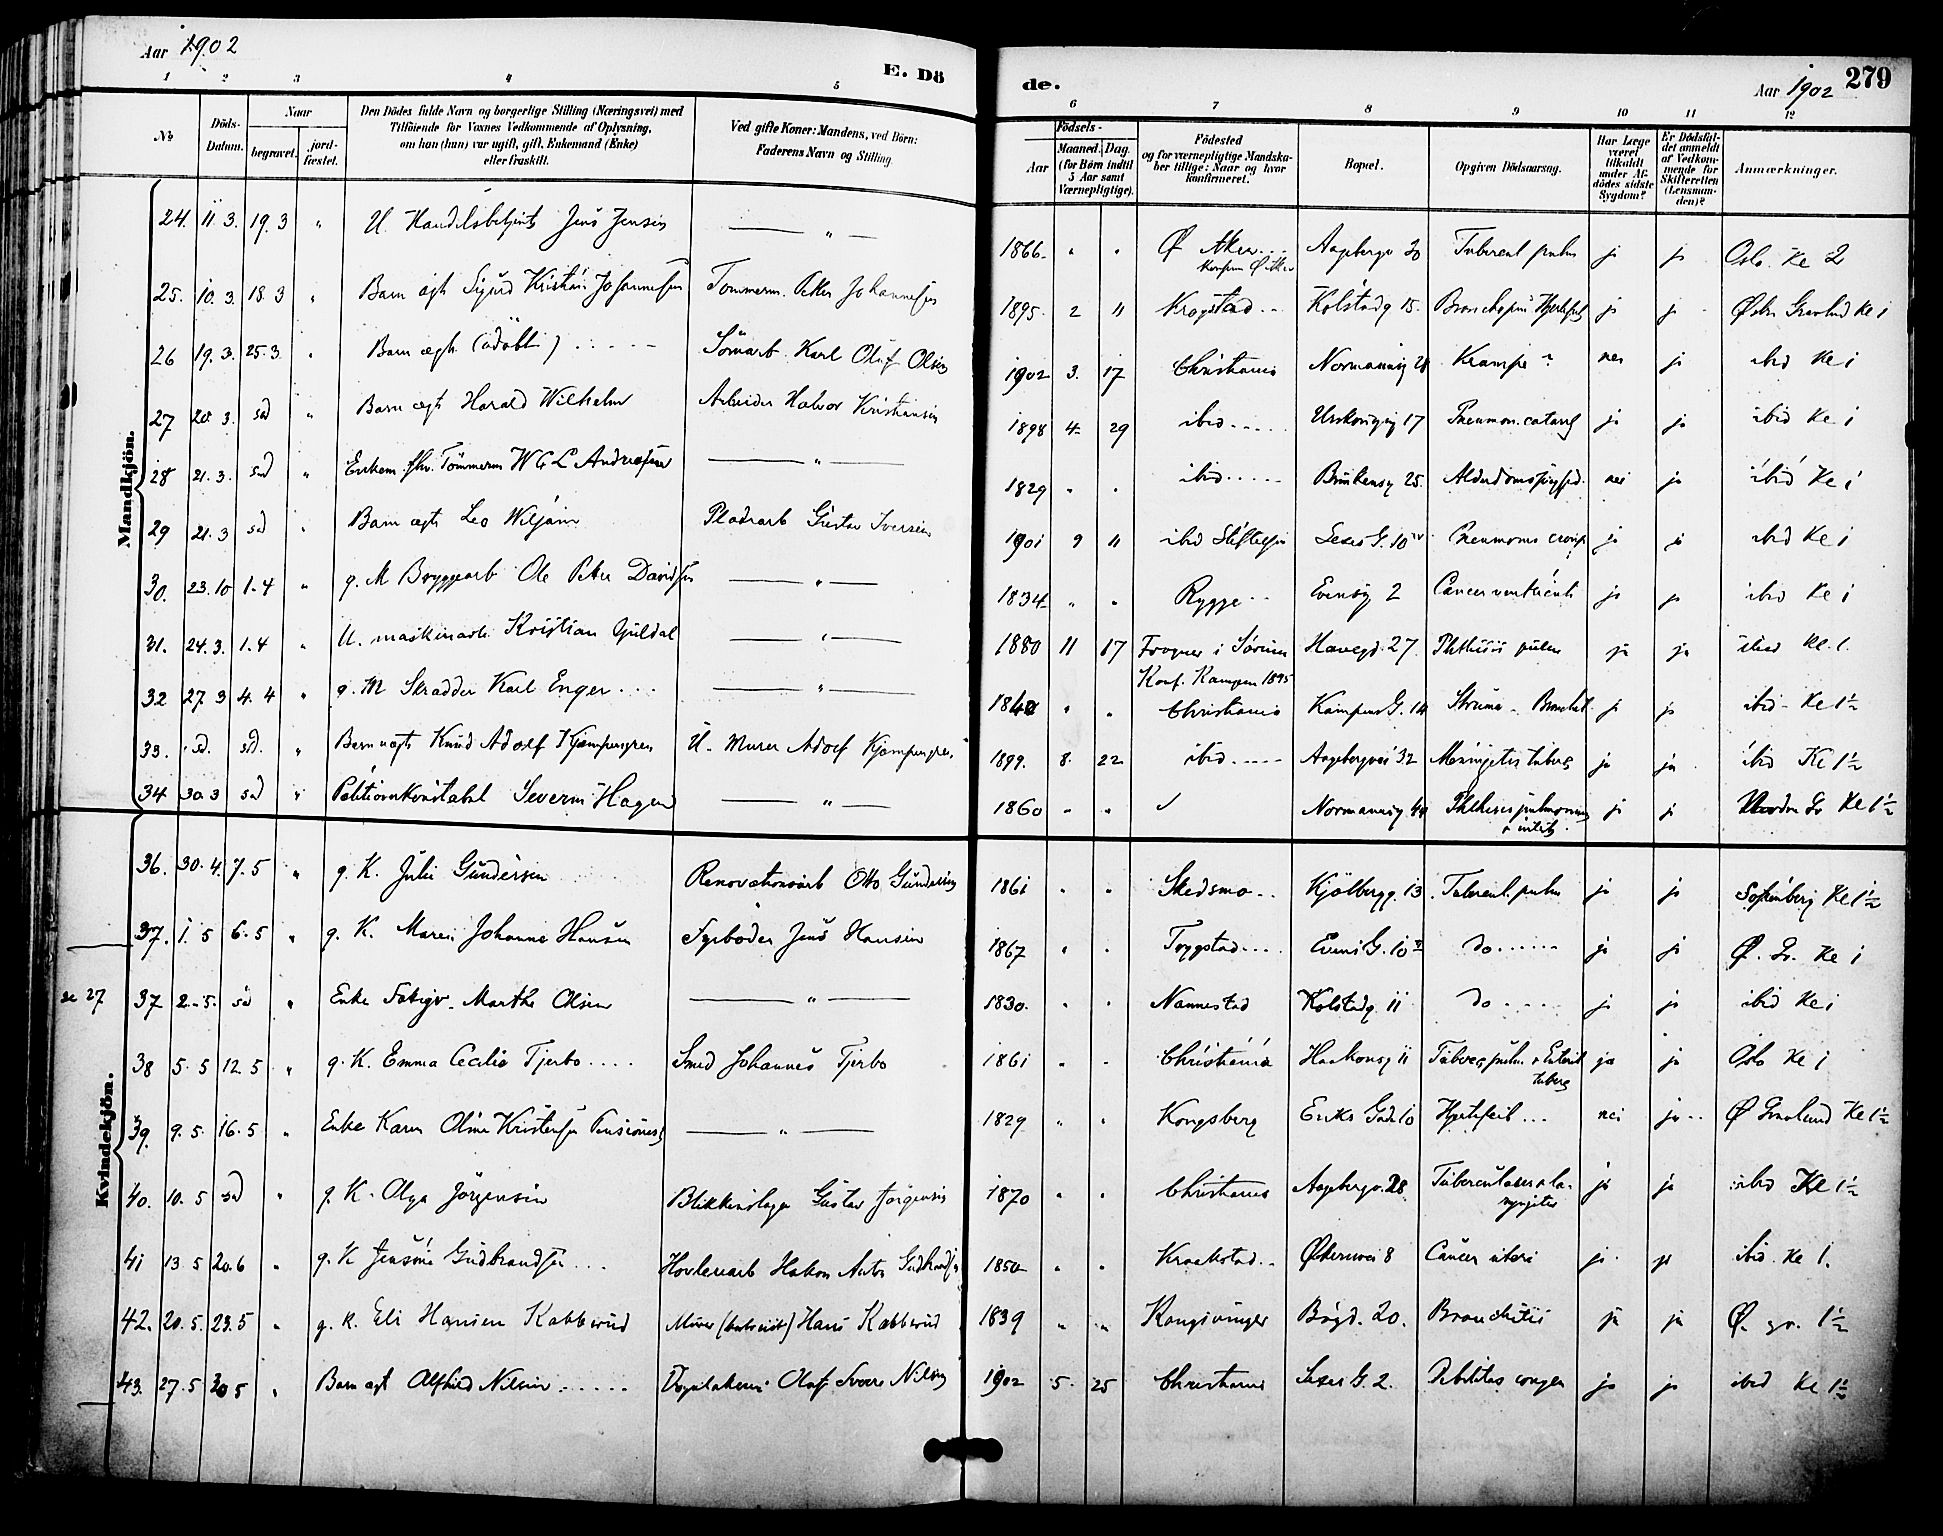 Aar 1902
E. Dö
de.
Aar 1902
279
1 2 3 4 5 6 7 8 9 10 11 12
No
Döds-Datum.
Naar
begravet.
jord-fæstet.
Den Dödes fulde Navn og borgerlige Stilling (Næringsvei) med
Tilföiende for Voxnes Vedkommende af Oplysning,
om han (hun) var ugift, gift, Enkemand (Enke)
eller fraskilt.
Ved gifte Koner: Mandens, ved Börn:
Faderens Navn og Stilling.
Födsels-
Aar
Maaned. Dag.
(for Börn indtil
5 Aar samt
Værnepligtige).
Födested
og for værnepligtige Mandska-
ber tillige: Naar og hvor
konfirmeret.
Bopæl.
Opgiven Dödsaarsag.
Har Læge
været
tilkaldt
under Af-
dödes sidste
Sygdom?
Er Dödsfal-
det anmeldt
af Vedkom-
mende for
Skifteretten
(Lensman-
den)?
Anmærkninger.
Mandkjön.
24. 11 3. 19. 3 " U. Handelsbetjent Jens Jensen — " — 1866 " " Ø Aker Konfirm Ø Aker Aagebergv 30 Tubercul pulm ja ja Oslo Ke 2
25. 10. 3. 18. 3 " Barn ægt Sigurd Kristian Johannesen Tømmerm. Peter Johannesen 1895 2 11 Krogstad Kolstadg 15. ja ja Østre Gravlund Ke 1
26 19. 3. 25. 3 " Barn ægte (udøbt) Karl Oluf Olsen 1902 3. 17 Christiania Normannsg Krampe ? nei ja ibid Ke 1
27 20. 3. sd " Barn ægte Harald Wilhelm Arbeider Halvor Kristiansen 1898 4 29 ibid 17 Pneumon. catarrh ja ja ibid Ke 1
28 21. 3. sd " Enkem. fhv. Tømmerm W G L Andresen — " — 1829 " " ibid 25. nei ja ibid Ke 1
29 21. 3 sd " Barn ægte Leo Wiljam Pladsarb Gustav Iversen 1901 9 11 ibid Sexes G. 10 Pneumonia croup ja ja ibid Ke 1
30. 23. 10 1. 4 " g. M Bryggearb Ole Peter Davidsen — " — 1834 " " Rygge Evensg 2 Cancer ventriculi ja ja ibid Ke 1
31. 24. 3. 1. 4 " U. maskinarb. Kristian Guldal — " — 1880 11 17 Frogner i Sørum Konf. Kampen 1895 Havegd. 27 Phthisis pulm ja ja ibid Ke. 1.
32 27. 3 4. 4 " g. M Skrædder Karl Enger — " — " " Christiania Kampens G. 14 Struma ja ja ibid Ke 1½
33. sd. sd. " Barn uægte Knud Adolf Kjempengren U. Murer Adolf Kjempengren 1899. 8. 22 ibid Aagebergvei 32 Meningitis tuberc ja ja ibid Ke 1½
34 30. 3 sd " Politioverkonstabel Severin Hagen — " — 1860 " " Normannsg Phthisis pulmonum ja ja Ke 1½
Kvindekjön.
36. 30. 4. 7. 5 " g. K. Julie Gundersen Renovationsarb Otto Gundersen 1861 " " Skedsmo Kjølbergg. 13 Tubercul. pulm ja ja Sofienberg Ke 1½
37. 1. 5 6. 5 " g. K. Maren Johanne Hansen Fyrbøder Jens Hansen 1867 " " Trygstad Evens G. 10 do ja ja Ø. Gr. Ke 1
se 27
37 2. 5. sd " Enke Marthe Olsen — " — 1830. " " Nannestad Kolstadg. 11 do ja ja ibid Ke 1
38 5. 5 12. 5 " g. K. Emma Cecilie Tjerbo Smed Johannes Tjerbo 1861 " " Christiania Haakonsg 11 Tuberc pulm & Enterit tuberc ja ja Oslo Ke 1
39. 9. 5. 16. 5 " Enke Karen Oline Kristensen Pensionist — " — 1829 " " Kongsberg Eriks Gade 10 Hjertefeil nei ja Ø Gravlund Ke 1½
40. 10. 5 sd " g. K. Olga Jørgensen Blikkenslager Gustav Jørgensen 1870 " " Christiania Aagebergv. 28. ja ja ibid Ke 1½
41 13. 5 20. 6 " g. K Gudbrandsen Høvleriarb Hakon Anton Gudbrandsen 1850 " " Kraakstad Økernvei 8 Cancer uteri ja ja ibid. Ke 1.
42. 20. 5. 23. 5 " g. K. Eli Hansen Kabberud Murer Hans Kabberud 1839 " " Kongsvinger Bøgd. 20. Bronchitis ja ja Ø. gr. 1½
43. 27. 5 30 5 " Barn ægt Alfhild Nilsen Olaf Sverre Nilsen 1902 5. 25 Christiania Sexes G. 2. Debilitas congen ja ja ibid Ke 1½